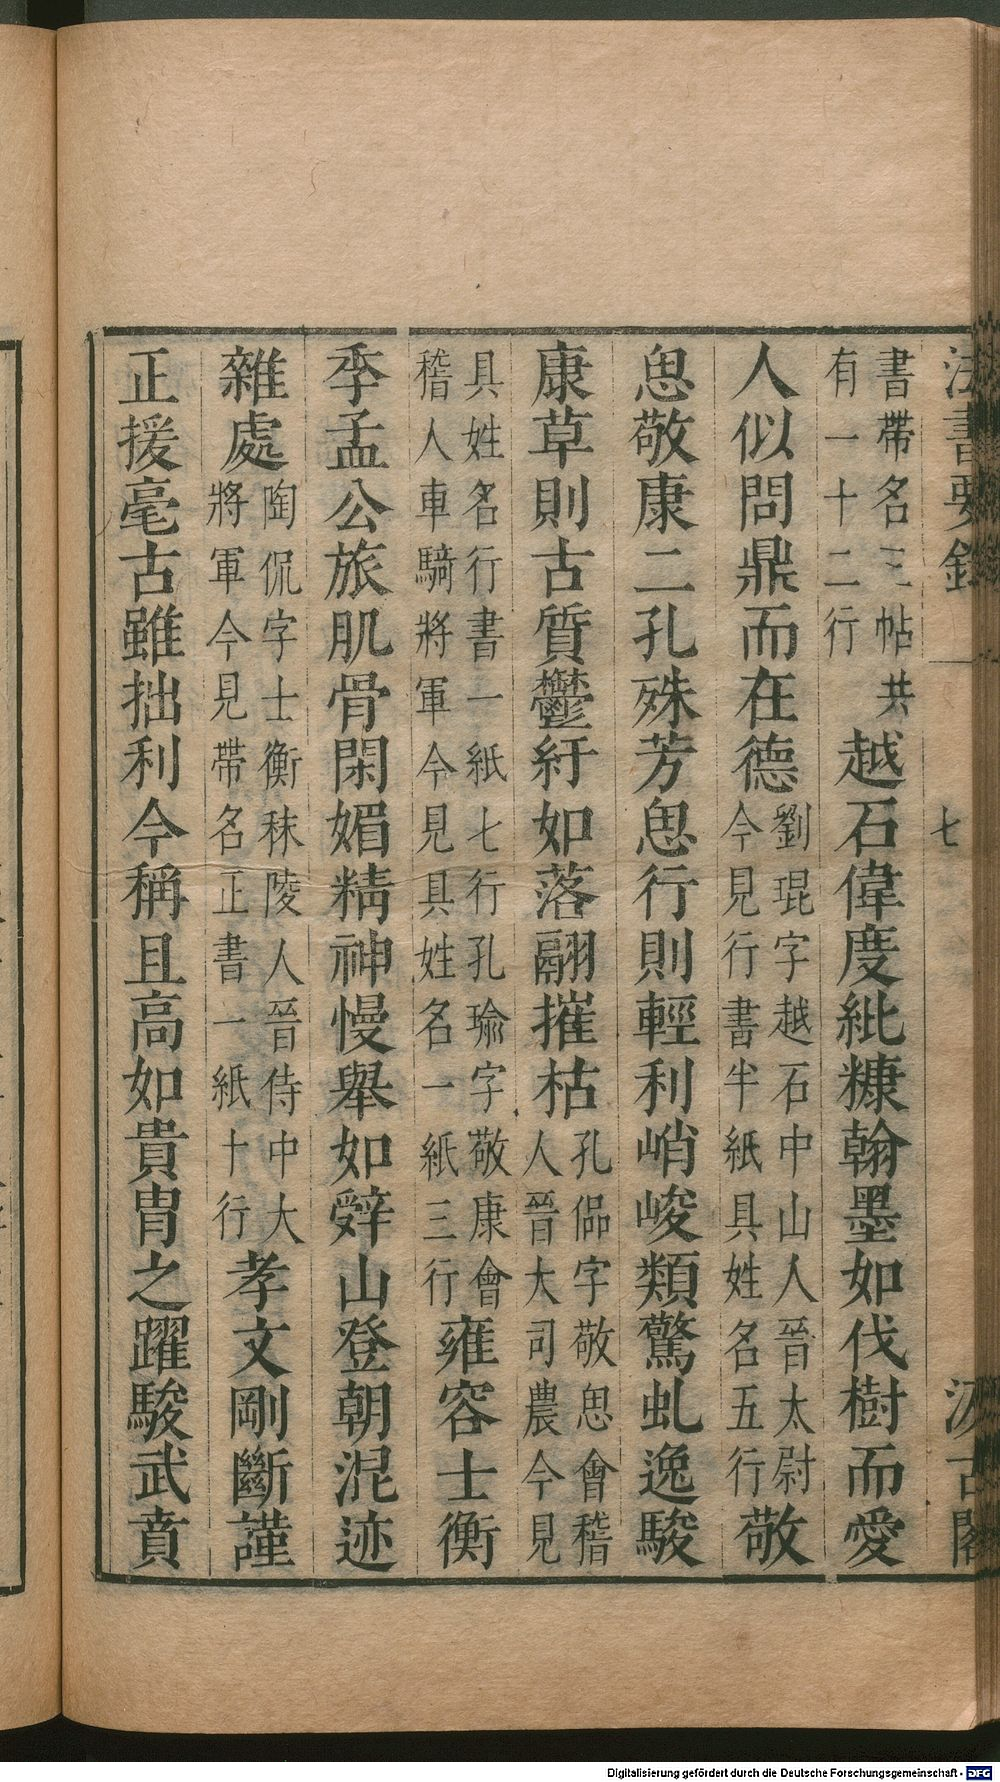 法書要錄
七
汲古閣
書帶名三帖共
有一十二行
越石偉度紕糠翰墨如伐樹而愛
人似問鼎而在德
劉琨字越石中山人晉太尉
今見行書半紙具姓名五行
敬
思敬康二孔殊芳思行則輕利峭峻類驚虬逸駿
康草則古質鬱紆如落翮摧枯
孔侃字敬思會稽
人晉大司農今見
具姓名行書一紙七行孔瑜字敬康會
稽人車騎將軍今見具姓名一紙三行
雍容士衡
季孟公旅肌骨閑媚精神慢舉如辭山登朝混迹
雜處
陶侃字士衡秣陵人晉侍中大
將軍今見帶名正書一紙十行
孝文剛斷謹
正援毫古雖拙利今稱且高如貴胄之躍駿武賁
Digitalisierung gefördert durch die Deutsche Forschungsgemeinschaft - DFG